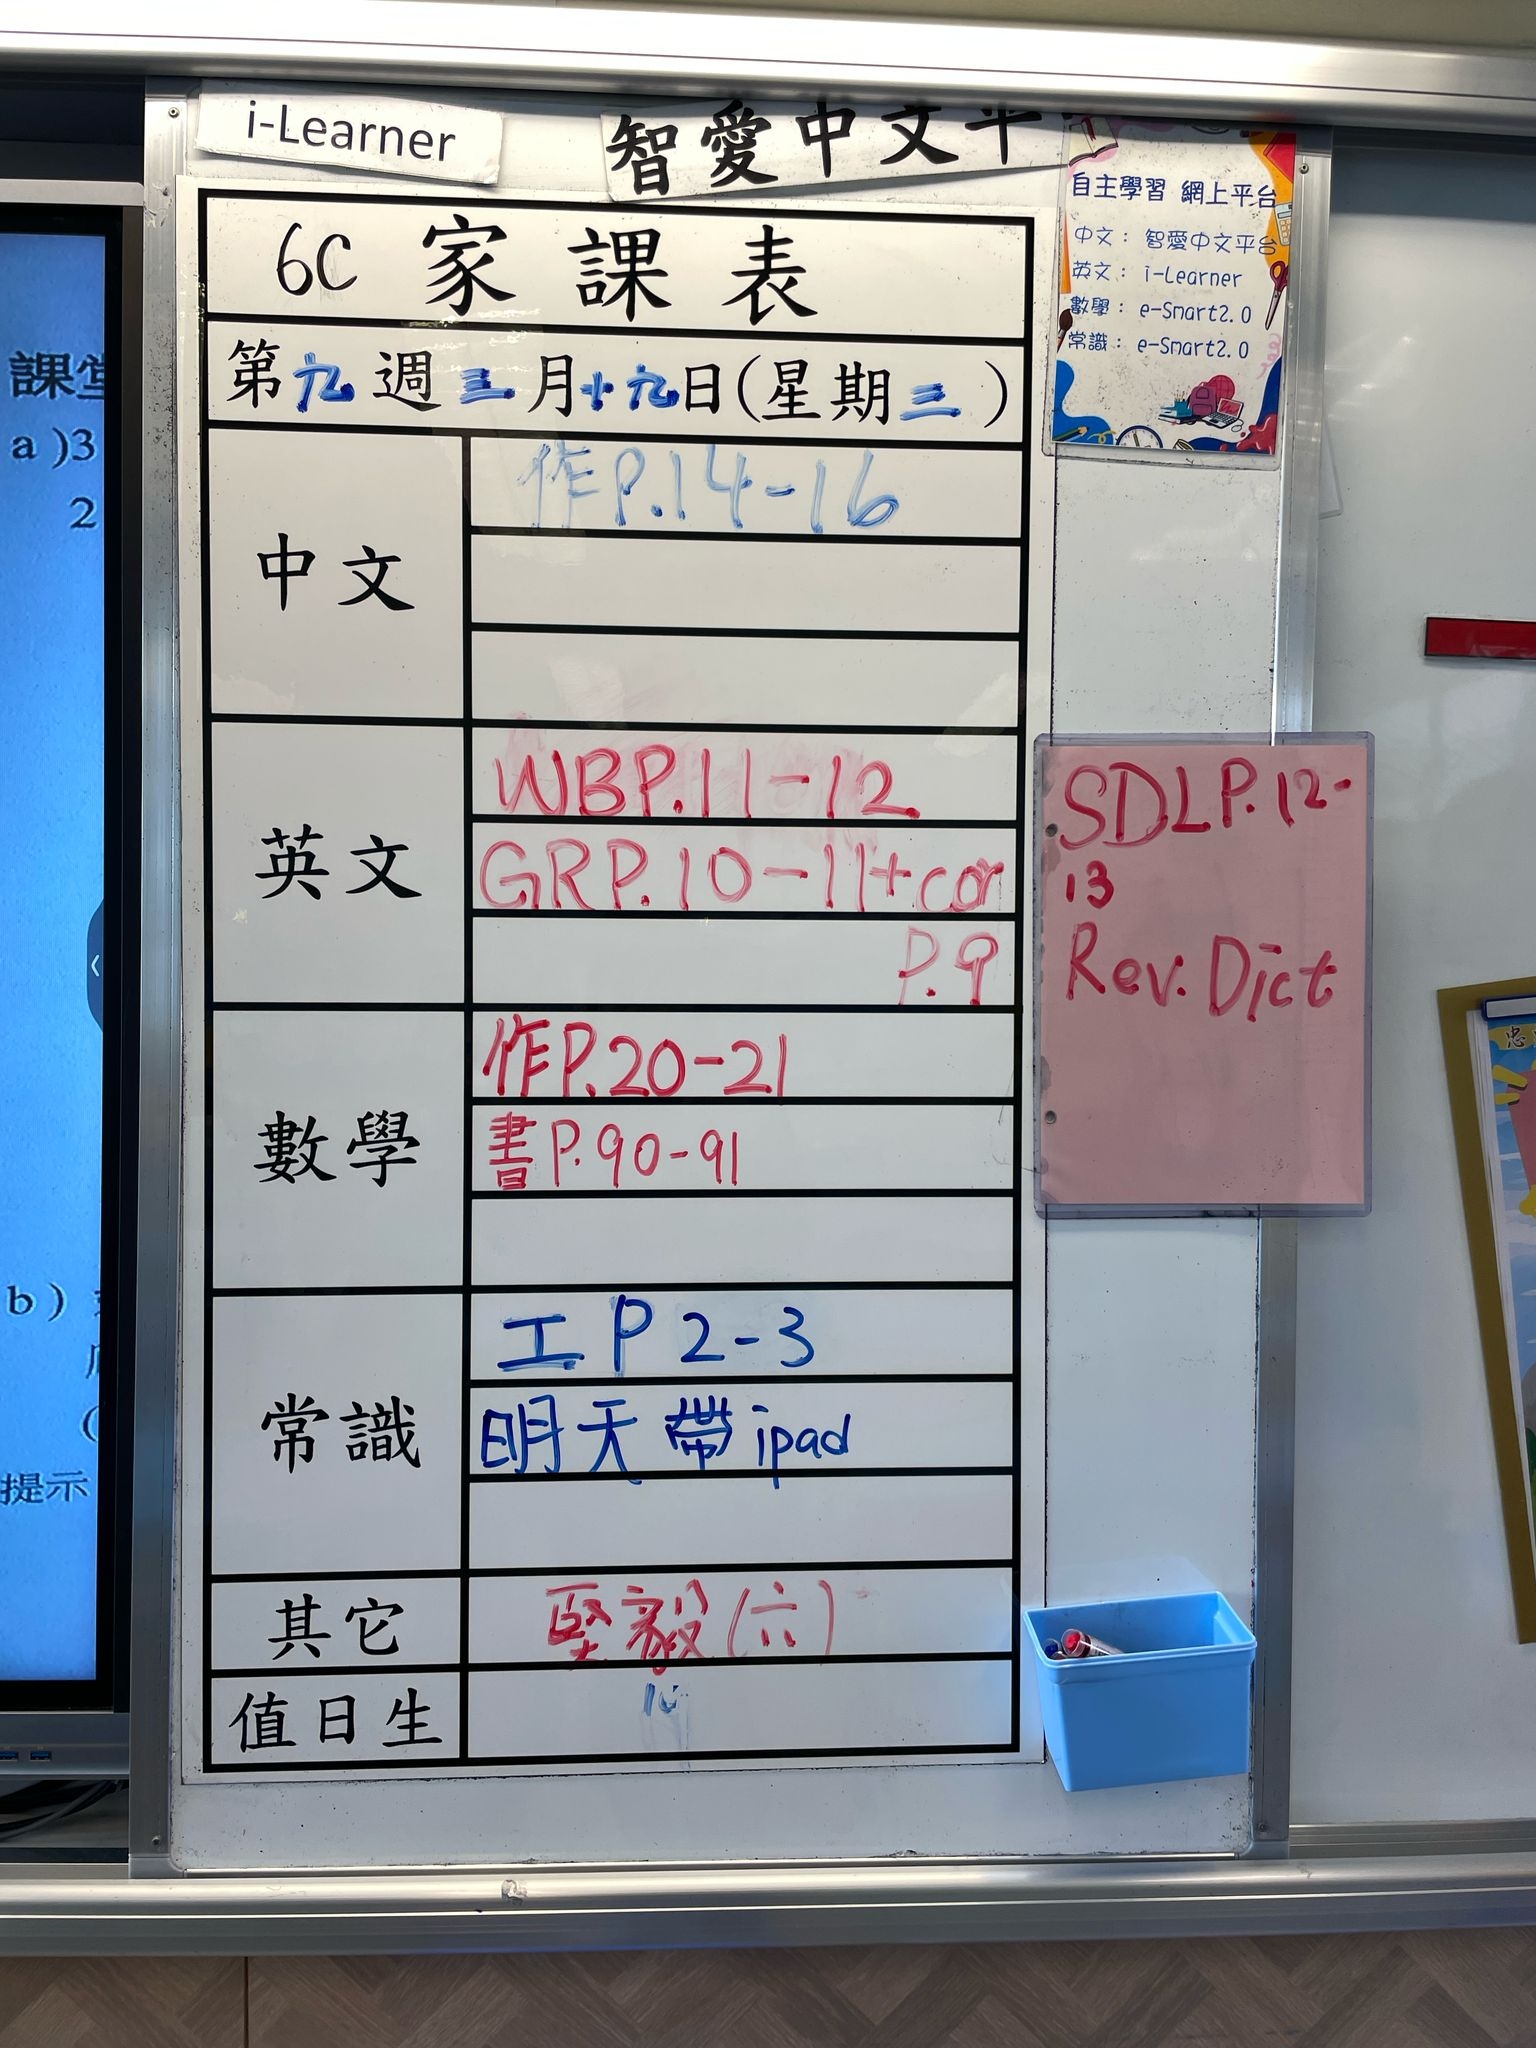 i-Learner
智愛中文平
自主學習 網上平台
中文： 智愛中文平台
英文： i-Learner
數學： e-Smart2.0
常識： e-Smart2.0
6C 家課表
第九週三月十九日(星期三)
中文
作P.14-16
英文
WBP.11-12
GRP.10-11+cor
P.9
SDLP.12-
13
Rev. Dict
數學
作P.20-21
書P.90-91
常識
工P 2-3
明天帶ipad
其它
堅毅(六)
值日生
課堂
a)3
2
b)
(
提示
忠